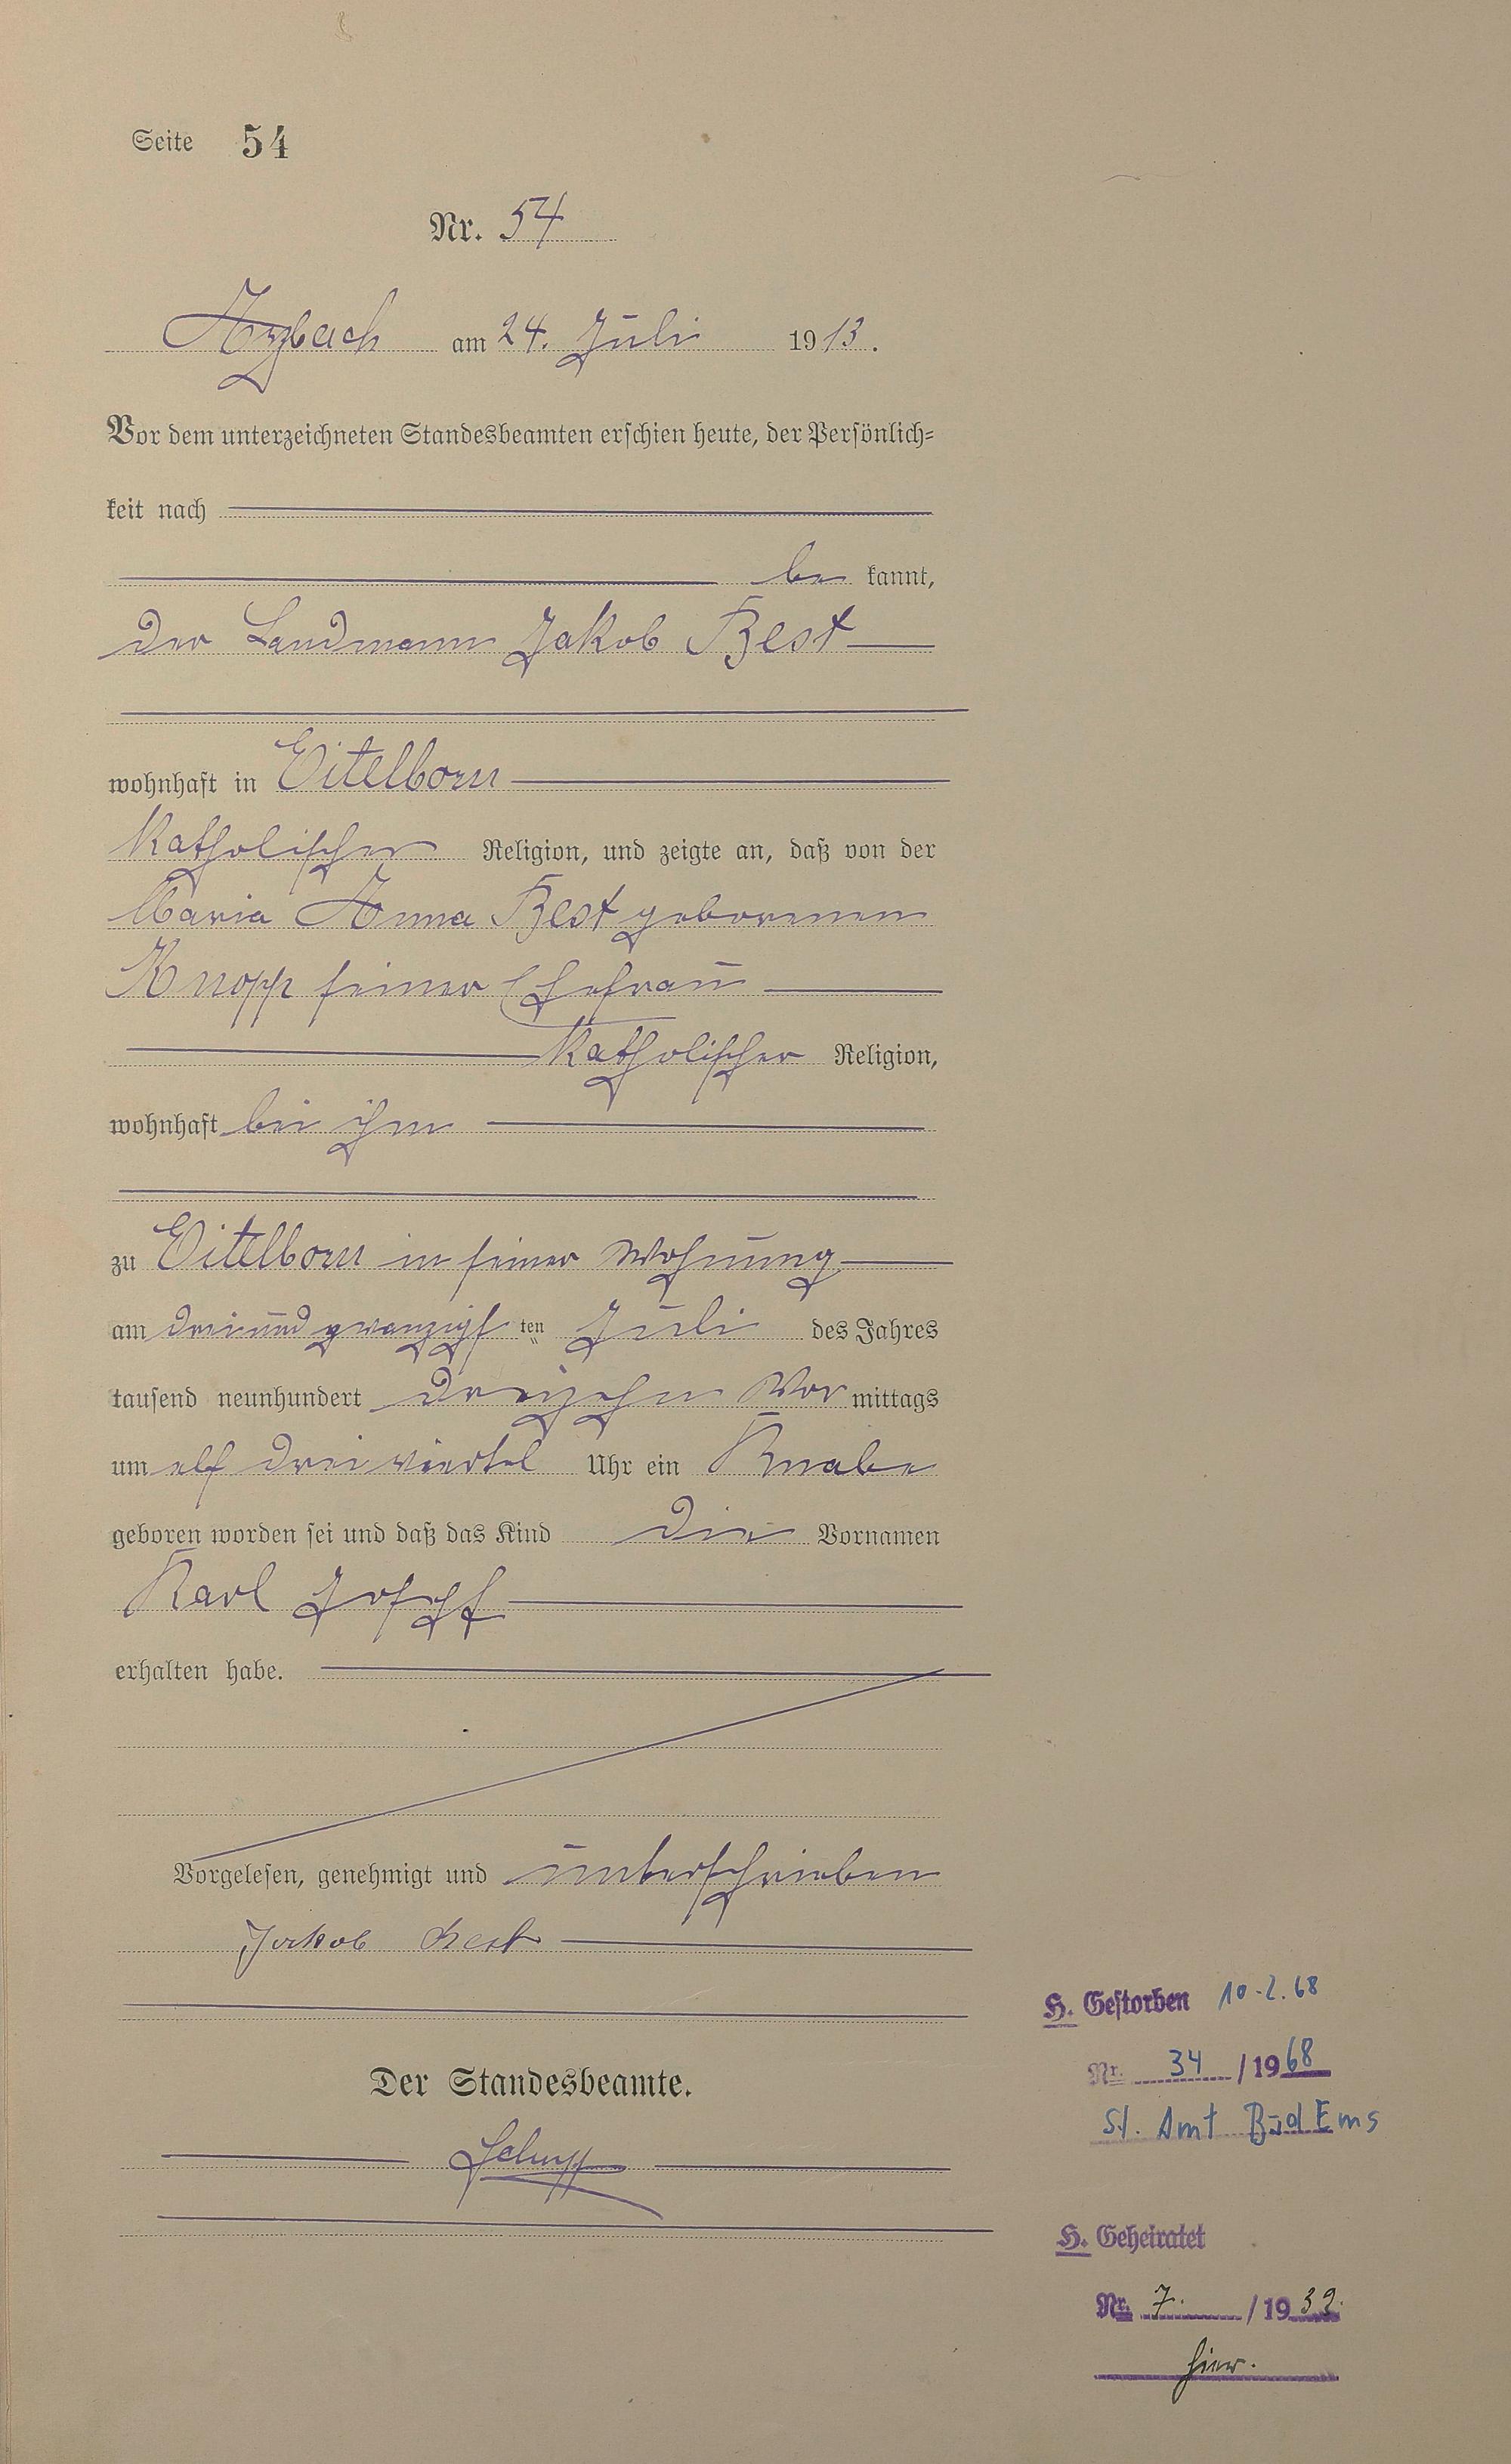 Seite 54
Nr. 54
Arzbach am 24. Juli 1913.
Vor dem unterzeichneten Standesbeamten erschien heute, der Persönlich-
keit nach
be kannt,
der Landmann Jakob Best
wohnhaft in Eitelborn
katholischer Religion, und zeigte an, daß von der
Maria Anna Best geborenen
Knopp seiner Ehefrau
katholischer Religion,
wohnhaft bei ihm
zu Eitelborn in seiner Wohnung
am dreiundzwanzigsten Juli des Jahres
tausend neunhundert dreizehn Vormittags
um elf dreiviertel Uhr ein Knabe
geboren worden sei und daß das Kind die Vornamen
Karl Josef
erhalten habe.
Vorgelesen, genehmigt und unterschrieben
Jakob Best
Der Standesbeamte.
H. Gestorben 10.2.68
Nr. 34 / 1968
St. Amt Bad Ems
H. Geheiratet
Nr. 7. / 1939.
hier.